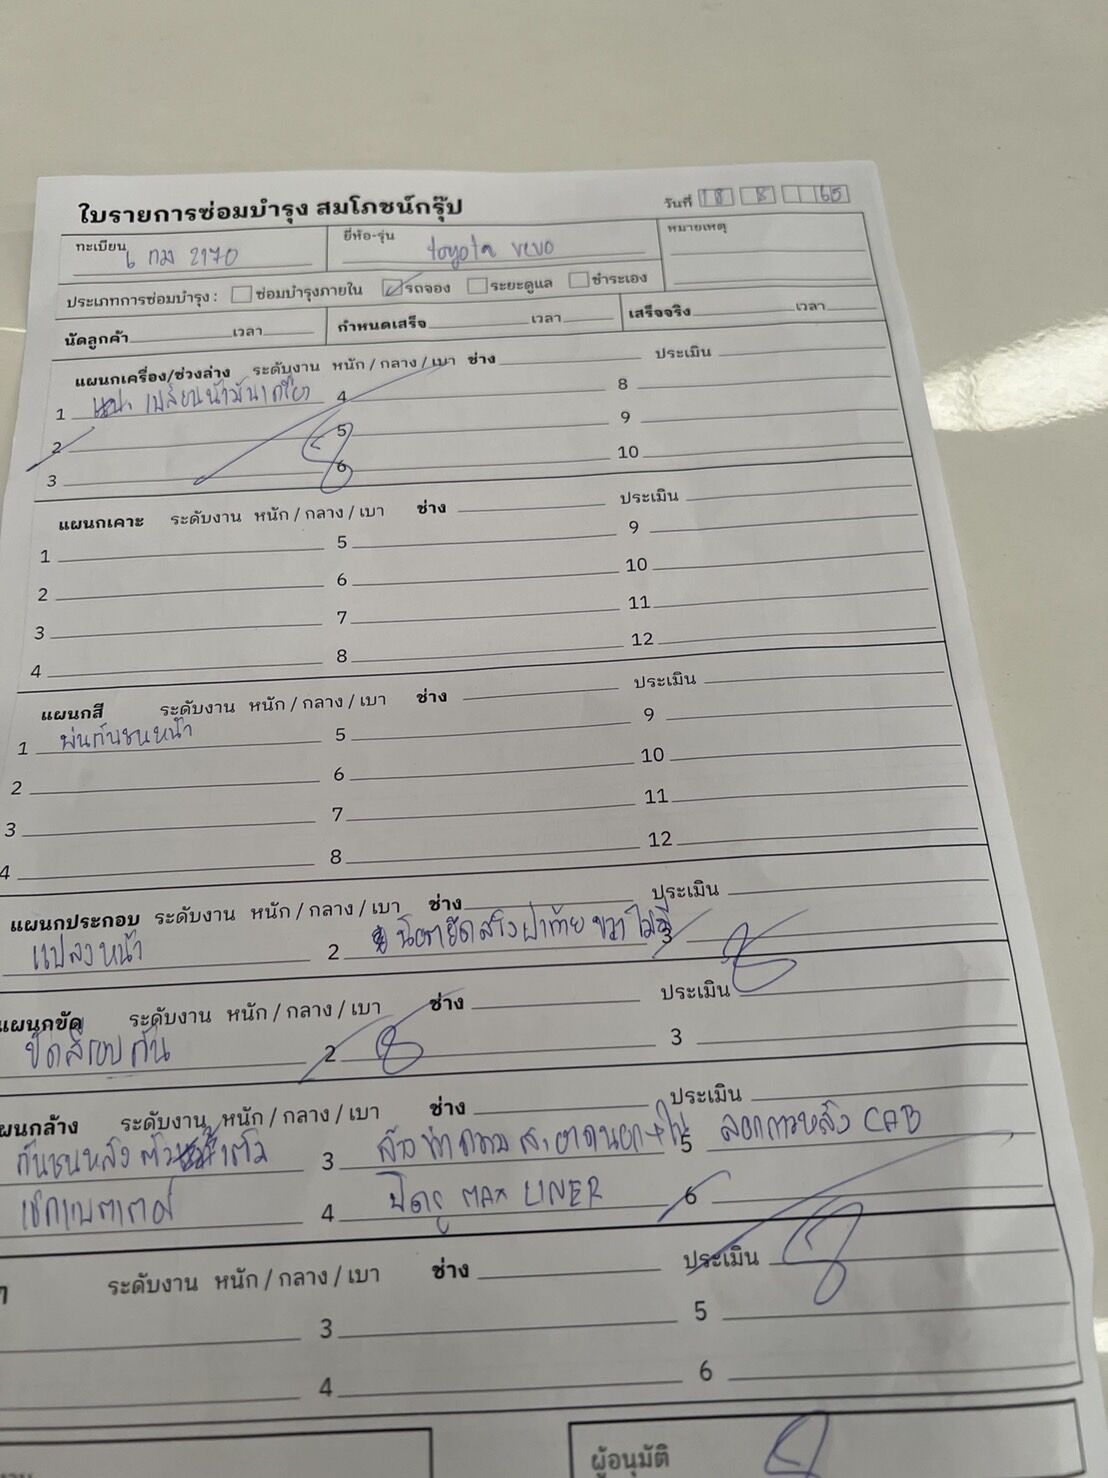 ใบรายการซ่อมบำรุง สมโภชน์กรุ๊ป วันที่ 18 8 65
ทะเบียน 6 กม 2170 ยี่ห้อ-รุ่น toyota revo หมายเหตุ
ประเภทการซ่อมบำรุง : ซ่อมบำรุงภายใน รถจอง ระยะดูแล ชำระเอง
นัดลูกค้า เวลา กำหนดเสร็จ เวลา เสร็จจริง เวลา
แผนกเครื่อง/ช่วงล่าง ระดับงาน หนัก / กลาง / เบา ช่าง ประเมิน
1 เปลี่ยนน้ำมันเครื่อง 4 8
2 5 9
3 6 10
แผนกเคาะ ระดับงาน หนัก / กลาง / เบา ช่าง ประเมิน
1 5 9
2 6 10
3 7 11
4 8 12
แผนกสี ระดับงาน หนัก / กลาง / เบา ช่าง ประเมิน
1 พ่นกันชนหน้า 5 9
2 6 10
3 7 11
4 8 12
แผนกประกอบ ระดับงาน หนัก / กลาง / เบา ช่าง ประเมิน
แปลงหน้า 2 น๊อตยึด ฝาท้าย ขวา ไม่มี 3
แผนกขัด ระดับงาน หนัก / กลาง / เบา ช่าง ประเมิน
ขัดสีรอบคัน 2 3
ผนกล้าง ระดับงาน หนัก / กลาง / เบา ช่าง ประเมิน
กันชนหลัง 3 ล้าง ทำความสะอาดนอก+ใน 5 ลอกกาวหลัง CAB
เช็คแบตเตอรี่ 4 ปิดรู MAX LINER 6
ระดับงาน หนัก / กลาง / เบา ช่าง ประเมิน
3 5
4 6
ผู้อนุมัติ